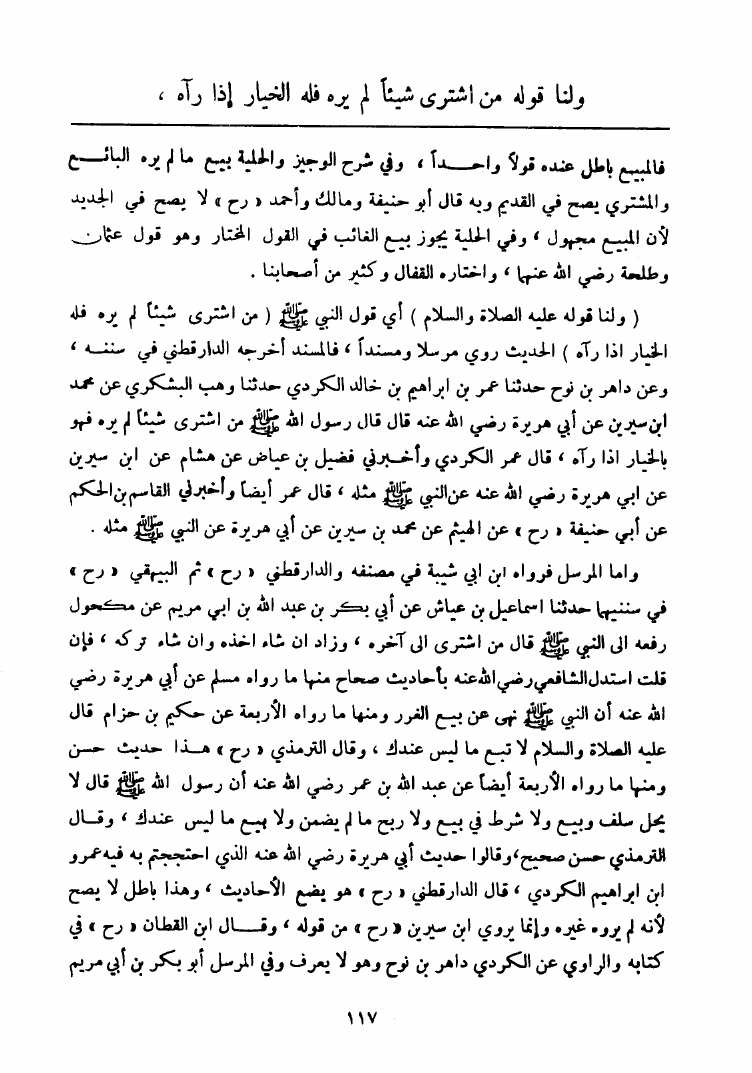 ولنا قوله من اشترى شيئاً لم يره فله الخيار إذا رآه ،
فالمبيع باطل عنده قولاً واحـــداً ، وفي شرح الوجيز والحلية بيع ما لم يره البائـــع
والمشتري يصح في القديم وبه قال أبو حنيفة ومالك وأحمد « رح » لا يصح في الجديد
لأن المبيع مجهول ، وفي الحلية يجوز بيع الغائب في القول المختار وهو قول عثمان
وطلحة رضي الله عنهما ، واختاره القفال وكثير من أصحابنا .
( ولنا قوله عليه الصلاة والسلام ) أي قول النبي ﷺ ( من اشترى شيئاً لم يره فله
الخيار اذا رآه ) الحديث روي مرسلا ومسنداً ، فالمسند أخرجه الدارقطني في سننه ،
وعن داهر بن نوح حدثنا عمر بن ابراهيم بن خالد الكردي حدثنا وهب البشكري عن محمد
ابن سيرين عن أبي هريرة رضي الله عنه قال قال رسول الله ﷺ من اشترى شيئاً لم يره فهو
بالخيار اذا رآه ، قال عمر الكردي وأخـبرني فضيل بن عياض عن هشام عن ابن سيرين
عن ابي هريرة رضي الله عنه عن النبي ﷺ مثله ، قال عمر أيضاً وأخبرني القاسم بن الحكم
عن أبي حنيفة « رح » عن الهيثم عن محمد بن سيرين عن أبي هريرة عن النبي ﷺ مثله .
واما المرسل فرواه ابن ابي شيبة في مصنفه والدارقطني « رح » ثم البيهقي « رح »
في سننيهما حدثنا اسماعيل بن عياش عن أبي بكر بن عبد الله بن ابي مريم عن مكحول
رفعه الى النبي ﷺ قال من اشترى الى آخره ، وزاد ان شاء اخذه وان شاء تركه ، فإن
قلت استدل الشافعي رضي الله عنه بأحاديث صحاح منها ما رواه مسلم عن أبي هريرة رضي
الله عنه أن النبي ﷺ نهى عن بيع الغرر ومنها ما رواه الأربعة عن حكيم بن حزام قال
عليه الصلاة والسلام لا تبع ما ليس عندك ، وقال الترمذي « رح » هــذا حديث حسن
ومنها ما رواه الأربعة أيضاً عن عبد الله بن عمر رضي الله عنه أن رسول الله ﷺ قال لا
يحل سلف وبيع ولا شرط في بيع ولا ربح ما لم يضمن ولا بيع ما ليس عندك ، وقــال
الترمذي حسن صحيح، وقالوا حديث أبي هريرة رضي الله عنه الذي احتججتم به فيه عمرو
ابن ابراهيم الكردي ، قال الدارقطني « رح » هو يضع الأحاديث ، وهذا باطل لا يصح
لأنه لم يروه غيره وإنما يروي ابن سيرين « رح » من قوله ، وقـــال ابن القطان « رح » في
كتابه والراوي عن الكردي داهر بن نوح وهو لا يعرف وفي المرسل أبو بكر بن أبي مريم
١١٧